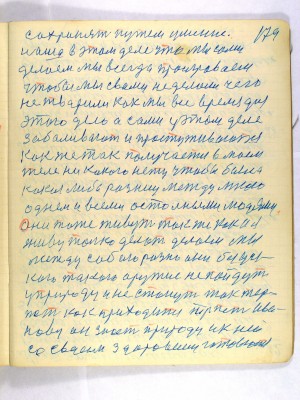 сохранят путем умение. 179
в этом деле что мы сами
делаем мы всегда проигроваем
чтобы мы с вами не делали чего
не творили как мы все время для
этого дело а сами у этом деле
заболивают и простуживаются
как же так получается в моем
теле ни какого нету чтобы была
какая либо разница между мною
одним и всеми остольными людями
они тоже живут так же как и я
живу только делот делаем мы
между собою разно они без вся
кого такого оружие не пойдут
у природу и не станут так тер
пет как приходится терпет Ива
нову он знает природу и к ней
со своем здоровием готовится